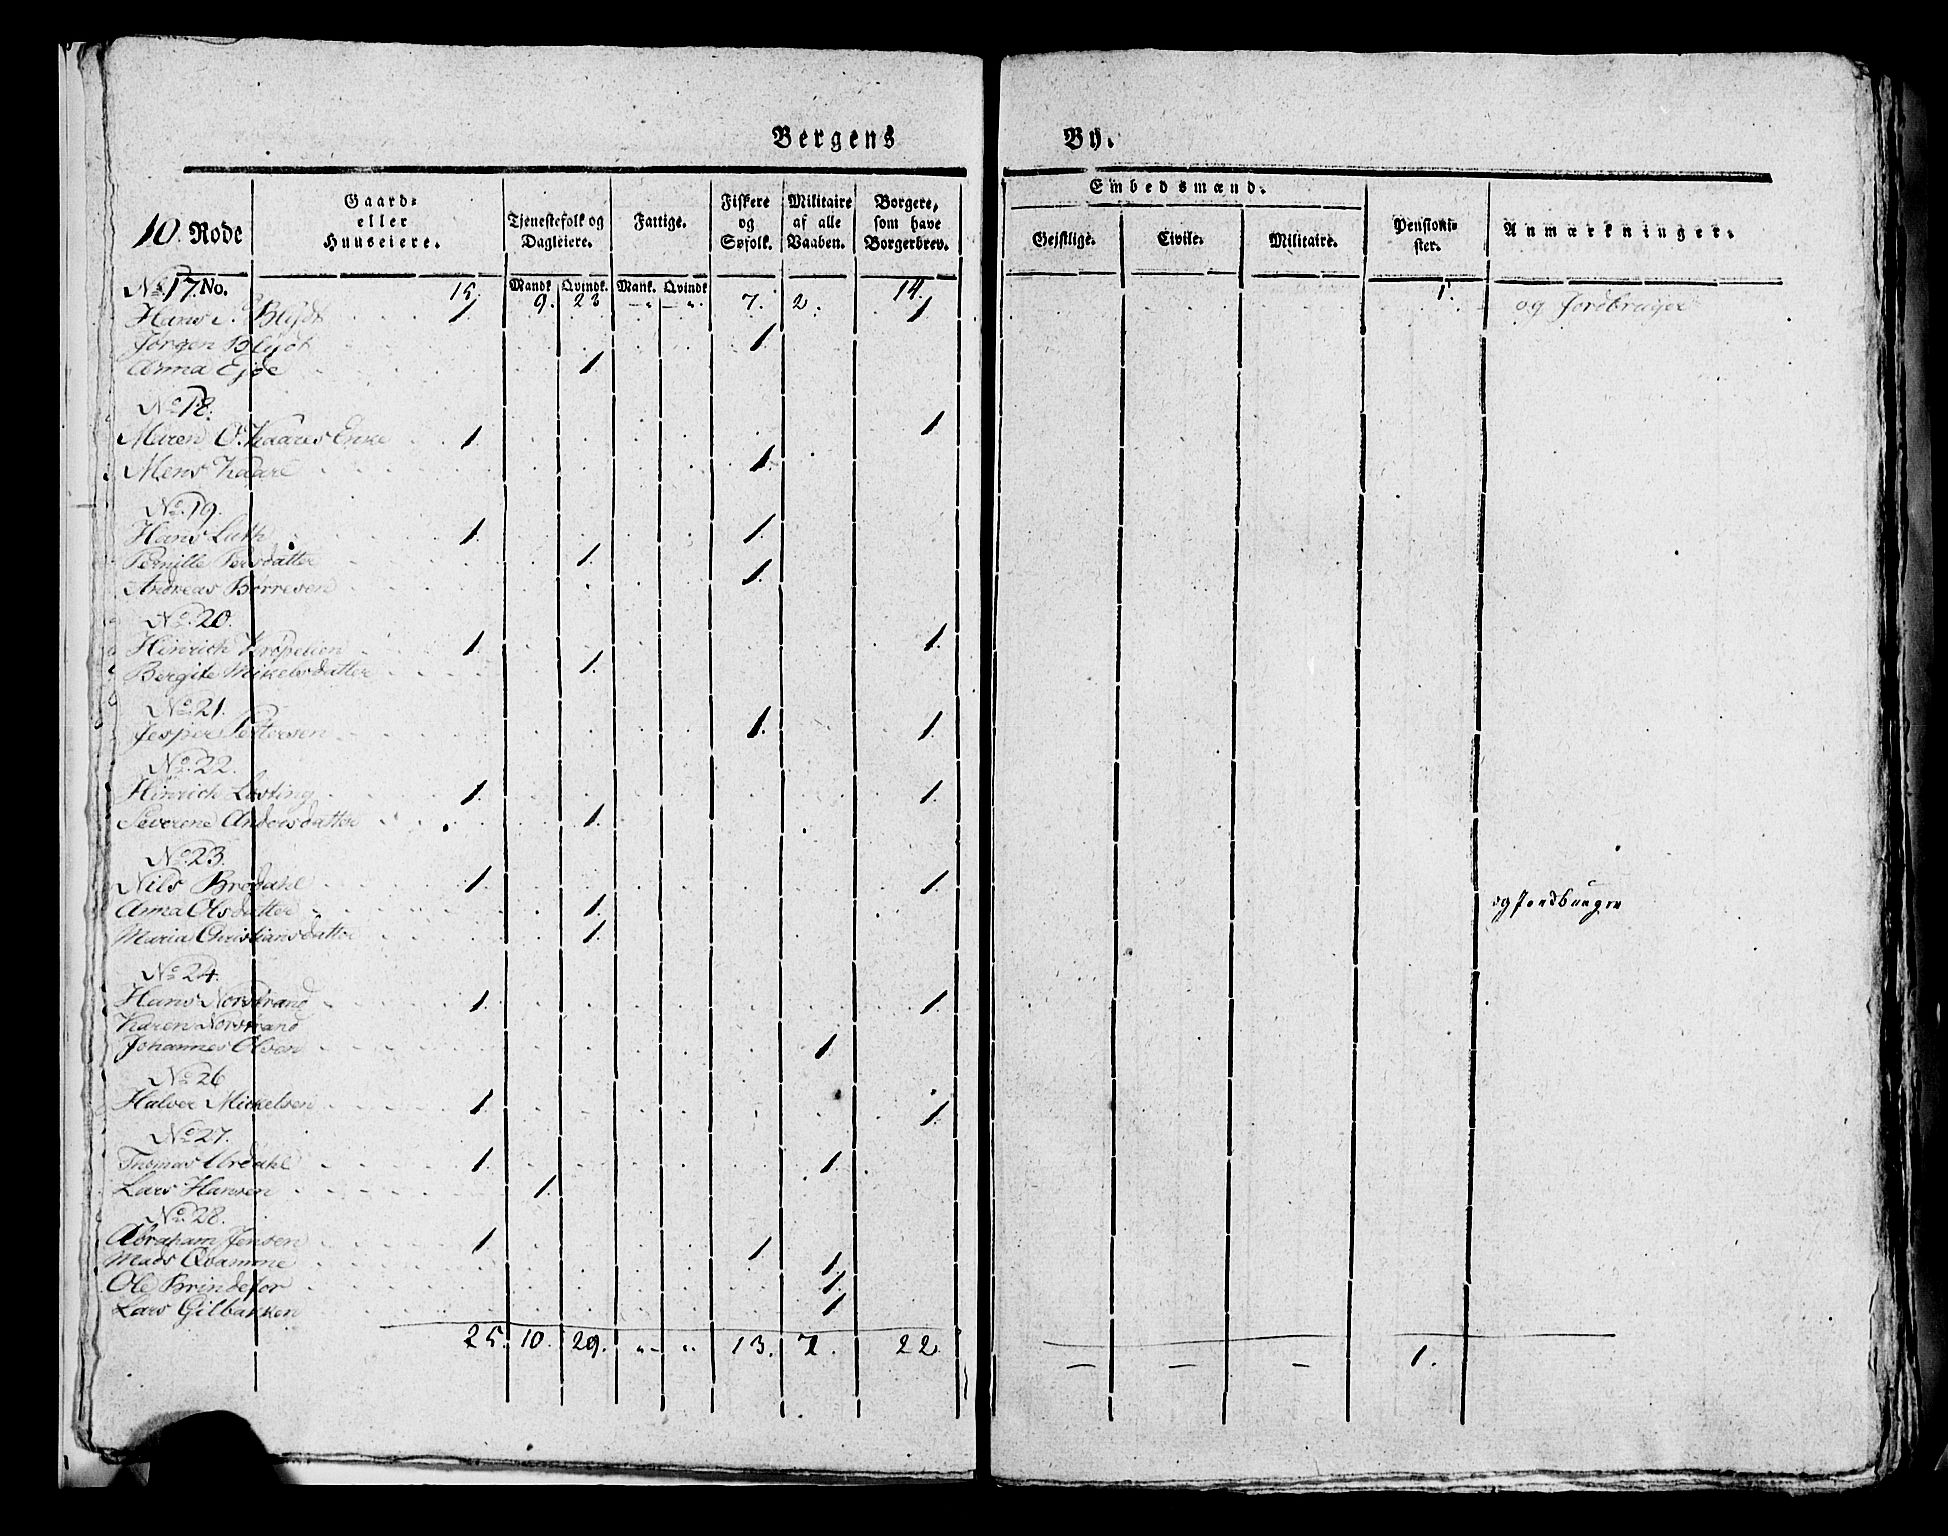 Bergens By.
10. Rode
Gaard- eller Huuseiere.
Tjenestefolk og Dagleiere.
Fattige.
Fiskere og Søfolk.
Militaire af alle Vaaben.
Borgere, som have Borgerbrev.
Embedsmænd.
Gejstlige.
Civile.
Militaire.
Pensionister.
Anmærkninger.
Mandk. Qvindk. Mank. Qvindk.
15. 9. 23 - „ - „. 7. 2. 14. 1.
No. 17. No.
Hans Blydt 1 1 og Jordbruger
Jørgen Blydt 1.
Anna Eyde 1
No. 18.
Maren O. Kaares Enke 1. 1.
Mons Kaare 1.
No. 19.
Hans Luth 1. 1.
Pernille Persdatter 1.
Andreas Børresen 1.
No. 20.
Hinrich Krøpelien 1. 1.
Bergite Mikelsdatter 1.
No. 21.
Jesper Pettersen 1. 1.
No. 22.
Hinrich Losting 1. 1.
Severene Andersdatter 1.
No. 23.
Nils Brodahl 1. 1.
Anna Olsdatter 1. og Jordbruger
Maria Christiansdatter 1.
No. 24.
Hans Norstrand 1. 1.
Karen Norstrand
Johannes Olsen 1.
No. 26
Halver Mickelsen 1. 1.
No. 27.
Thomas Urdahl 1. 1.
Lars Hansen 1.
No. 28.
Abraham Jensen 1. 1.
Mads Qvamme 1.
Ole Brindefor 1.
Lars Gilbakken 1
25. 10. 29. „ - „ 13. 7. 22 - - - 1.